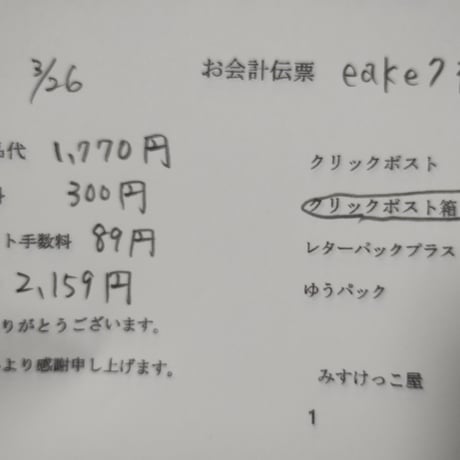 3/26
お会計伝票 eakeク
代 1,770円
300円
ット手数料 89円
2,159円
りがとうございます。
より感謝申し上げます。
クリックポスト
クリックポスト箱
レターパックプラス
ゆうパック
みすけっこ屋
1